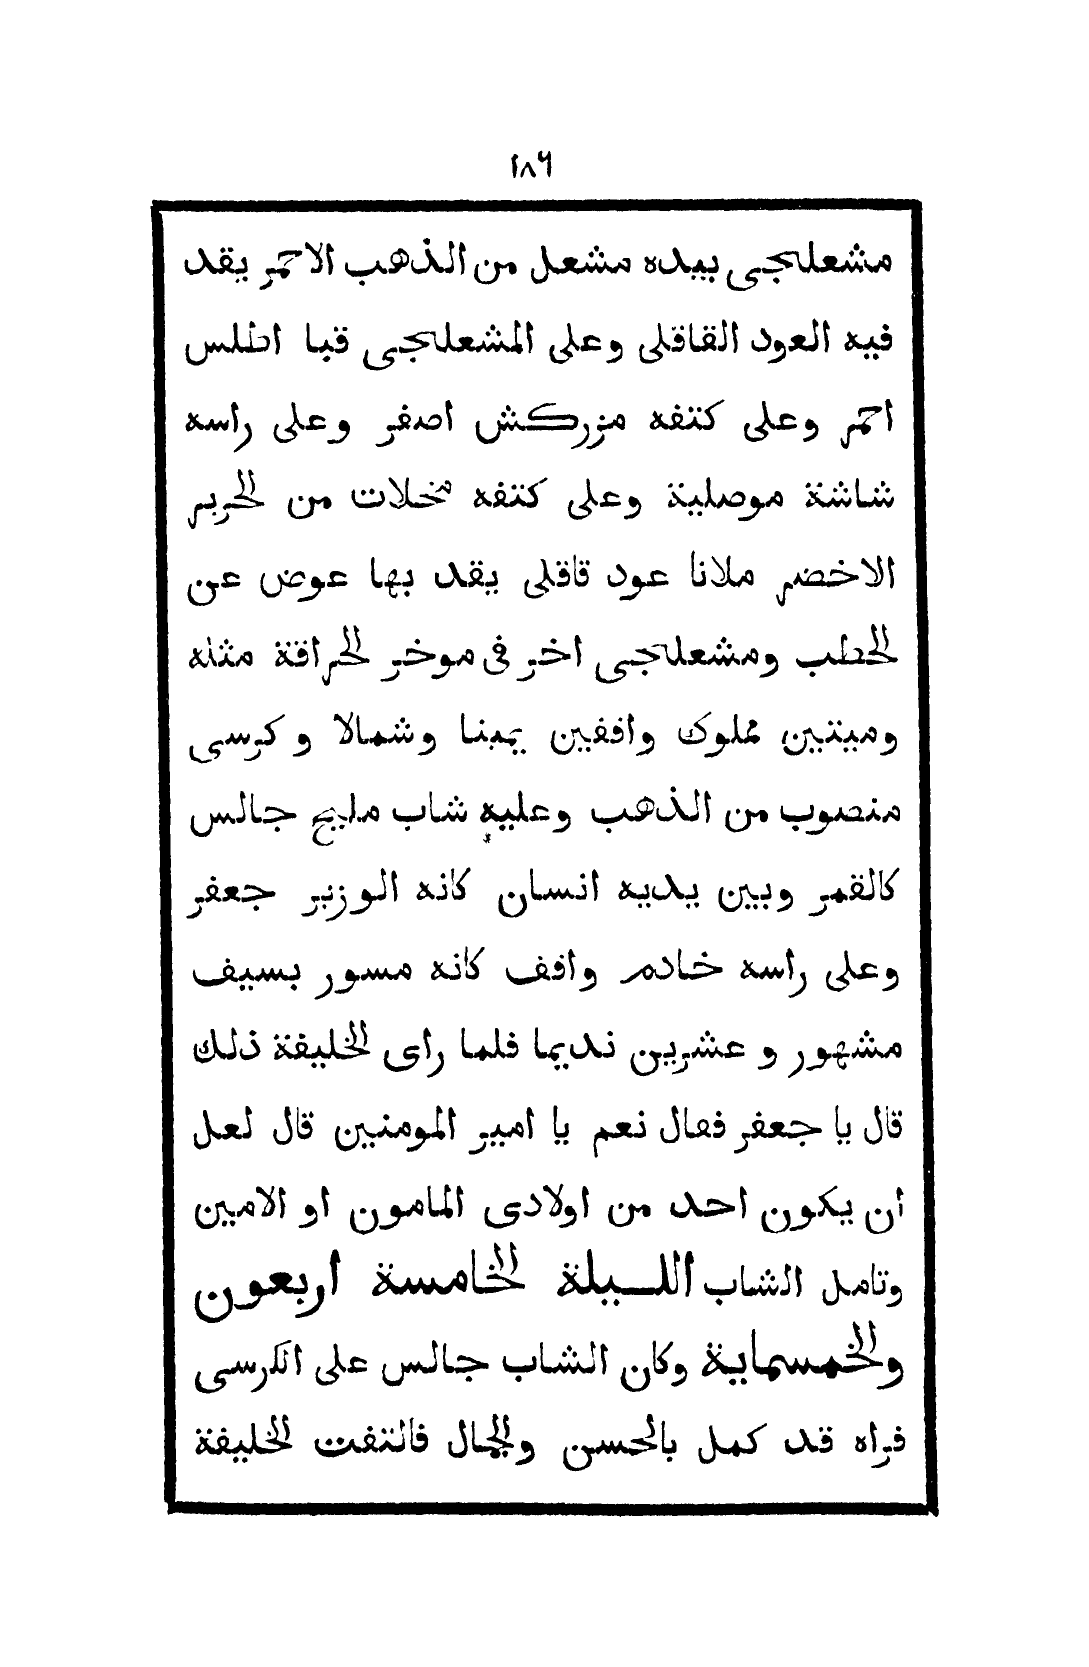 ١٨٦
مشعلجى بيده مشعل من الذهب الاحمر يقد
فيه العود القاقلى وعلى المشعلجى قبا اطلس
احمر وعلى كتفه مزركش اصفر وعلى راسه
شاشة موصلية وعلى كتفه مخلات من الحرير
الاخضر ملانا عود قاقلى يقد بها عوض عن
الحطب ومشعلجى اخر فى موخر الحراقة مثله
وميتين مملوك واقفين يمينا وشمالا وكرسى
منصوب من الذهب وعليه شاب مليح جالس
كالقمر وبين يديه انسان كانه الوزير جعفر
وعلى راسه خادم واقف كانه مسور بسيف
مشهور وعشرين نديما فلما راى الخليفة ذلك
قال يا جعفر فقال نعم يا امير المومنين قال لعل
ان يكون احد من اولادى المامون او الامين
وتامل الشاب الليلة الخامسة اربعون
والخمسماية وكان الشاب جالس على الكرسى
فراه قد كمل بالحسن والجمال فالتفت الخليفة